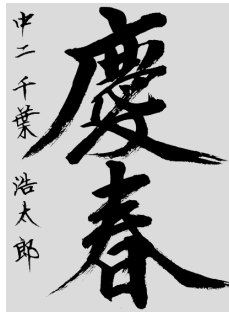 慶春
中二 千葉 浩太郎